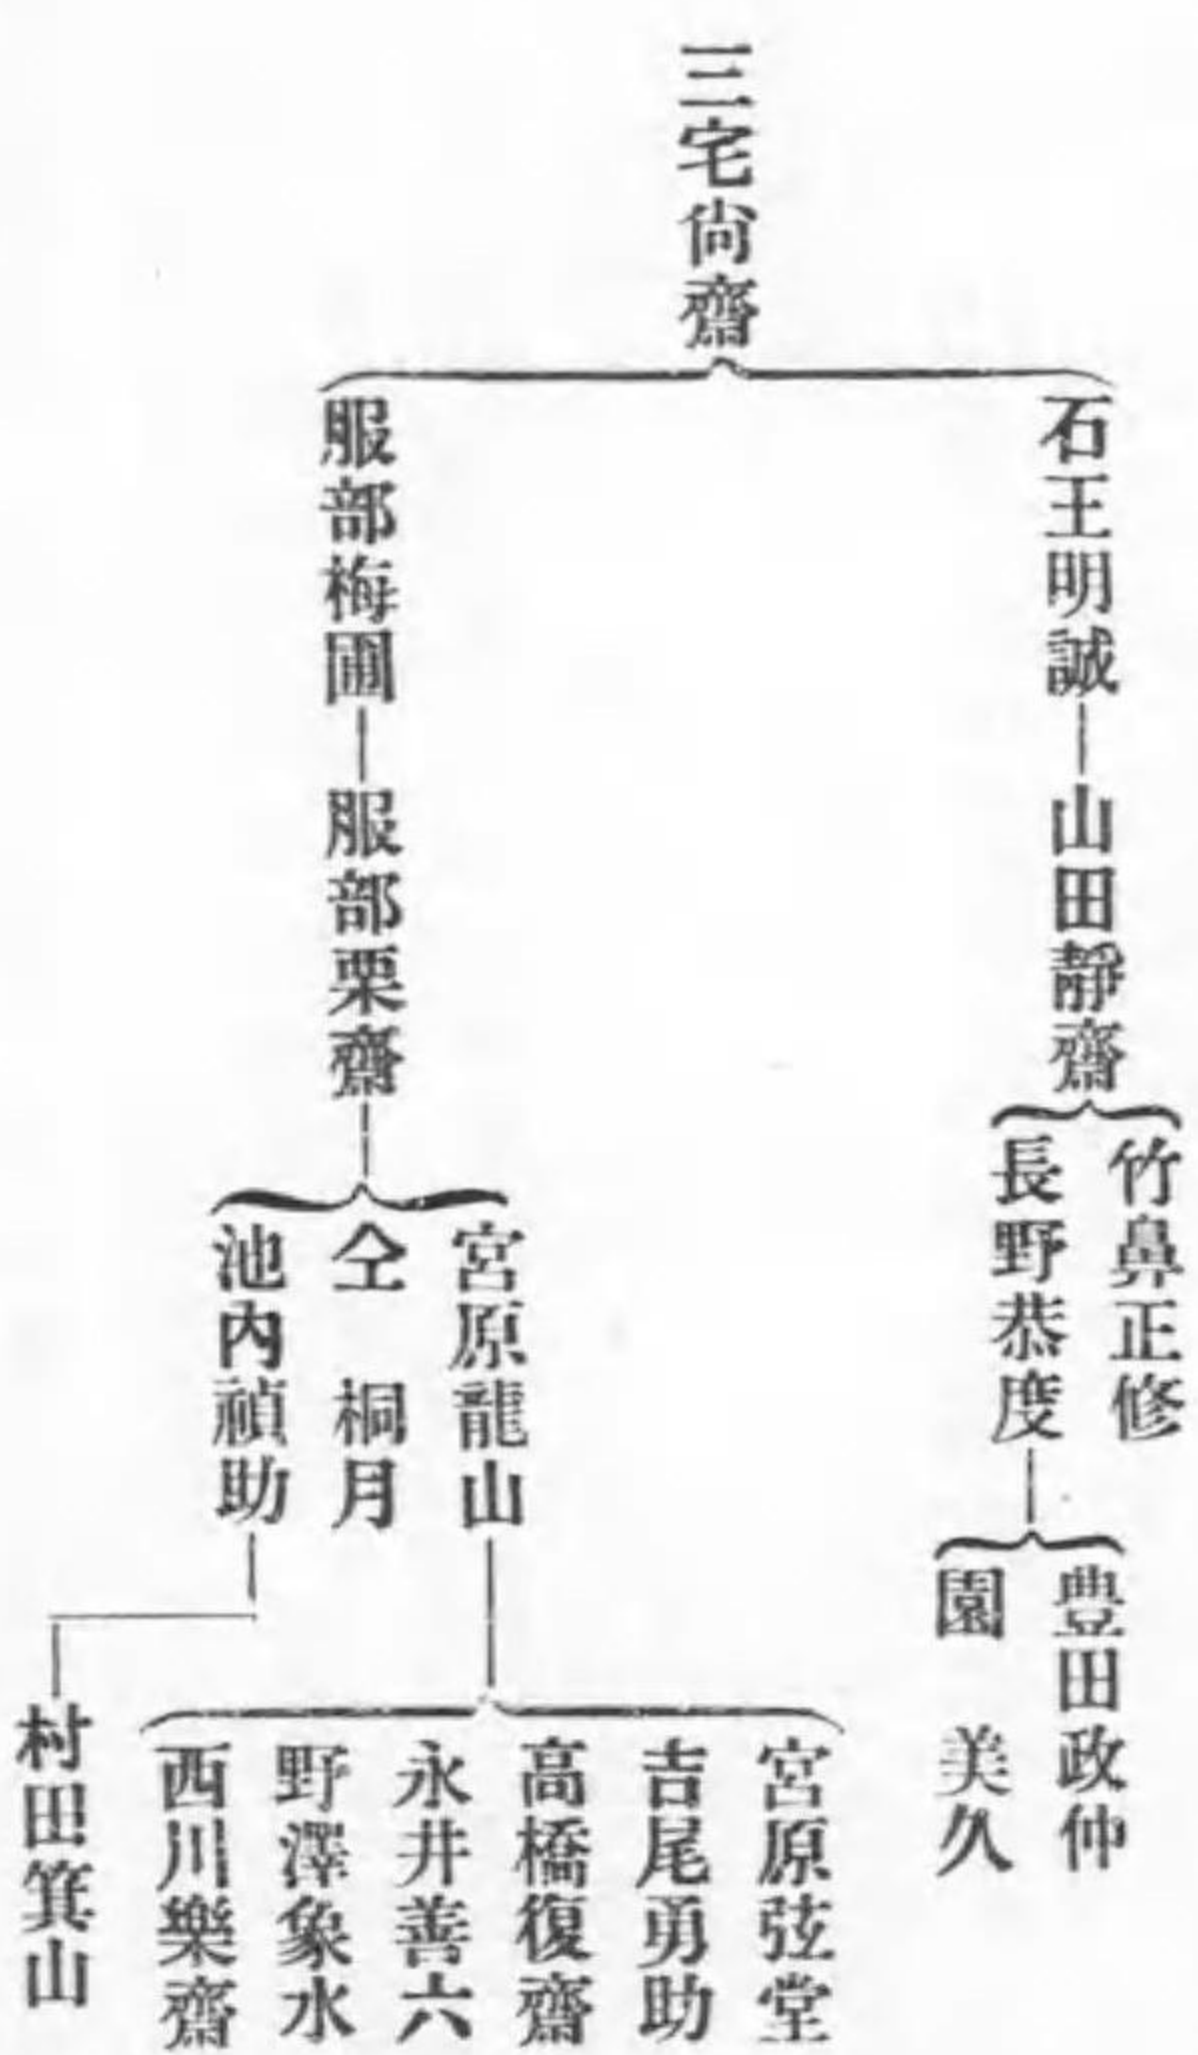 三宅尙齋
石王明誠
山田靜齋
竹鼻正修
長野恭度
豊田政仲
園 美久
服部梅圃
服部栗齋
宮原龍山
仝 桐月
池內禎助
宮原弦堂
吉尾勇助
高橋復齋
永井善六
野澤象水
西川樂齋
村田箕山